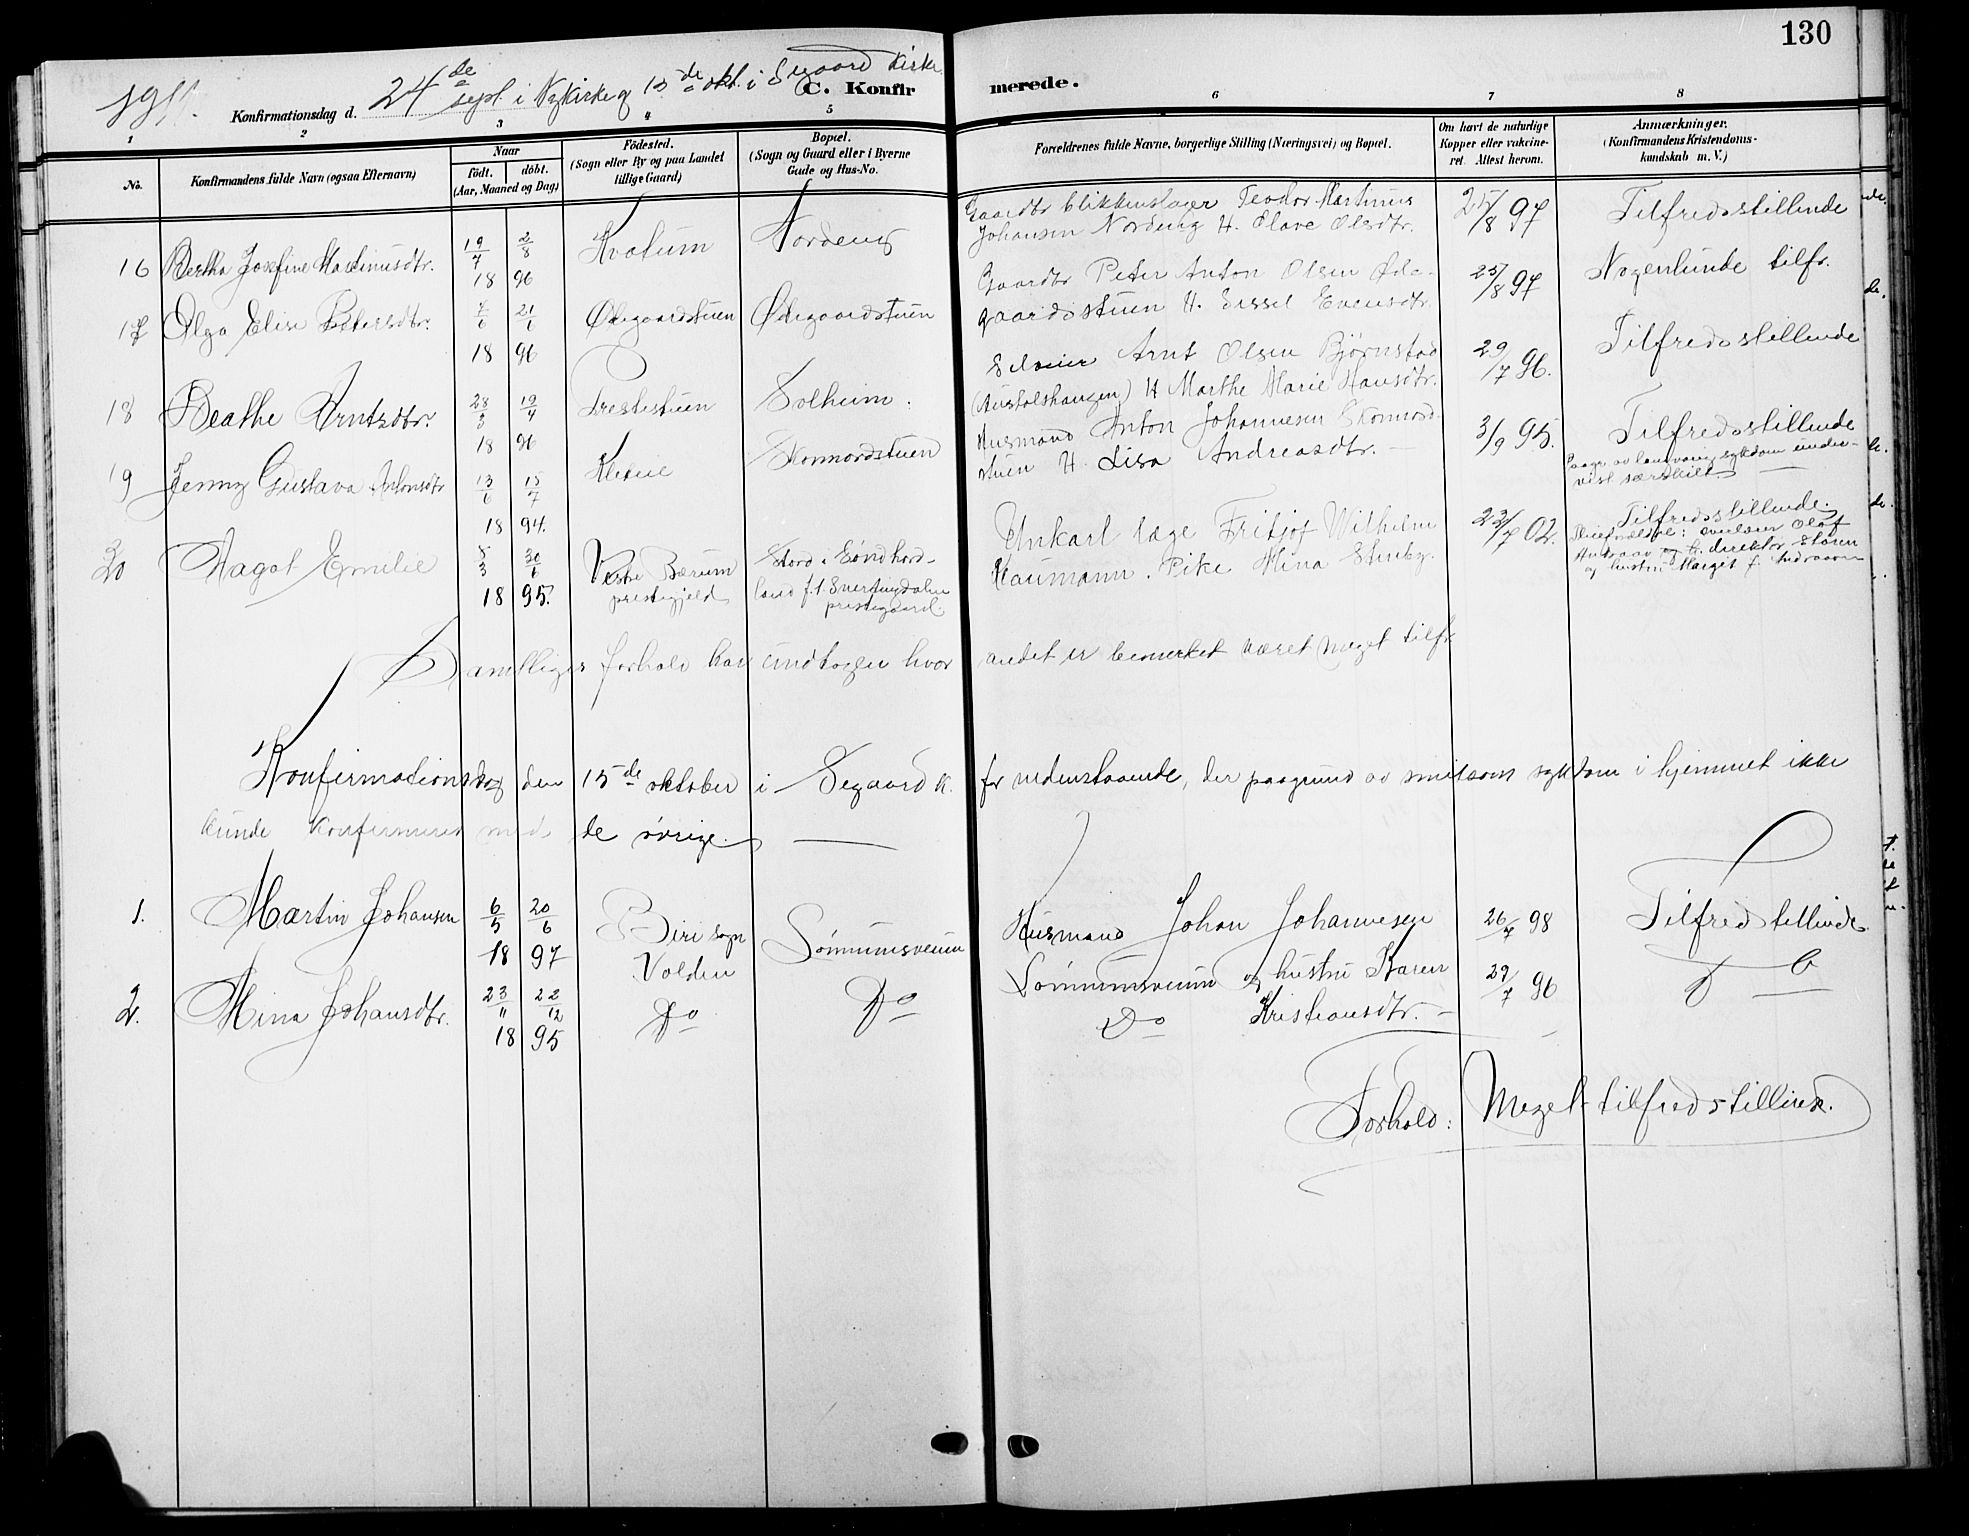 130
1911. Konfirmationsdag d. 24de sept. i Nykirke og 15de okt. i Segaard Kirke
C. Konfirmerede.
1 2 3 4 5 6 7 8
No.
Konfirmandens fulde Navn (ogsaa Efternavn)
Naar
födt. döbt.
(Aar, Maaned og Dag)
Födested.
(Sogn eller By og paa Landet
tillige Gaard)
Bopæl.
(Sogn og Gaard eller i Byerne
Gade og Hus-No.
Forældrenes fulde Navne, borgerlige Stilling (Næringsvei) og Bopæl.
Om havt de naturlige
Kopper eller vakcine-
ret. Attest herom.
Anmærkninger.
(Konfirmandens Kristendoms-
kundskab m. V.)
16 Bertha Josefine Martinusdtr. 19/7 2/8 18 96 Kvatum Nordeng
Gaardbr. blikkenslager Teodor Martinus
Johansen Nordeng H. Olave Olsdtr.
25/8 97 Tilfredsstillende
17 Olga Elise Petersdtr. 7/6 21/6 18 96 Ødegaardstuen Ødegaardstuen
Gaardbr Peter Anton Olsen Øde-
gaardsstuen H. Sissel Evensdtr.
25/8 97 Nogenlunde tilfr.
18 Beathe Arntsdtr. 28/3 19/4 18 96 Prestestuen Solheim.
Selveier Arnt Olsen Bjørnstad
H Marthe Marie Hansdtr.
29/7 96. Tilfredsstillende
19 Jenny Gustava Antonsdtr 13/6 15/7 18 94. Skonnordstuen
Husmand Anton Johannesen Skonnord-
stuen H. Lisa Andreasdtr.
3/9 95. Tilfredsstillende
Paagr. av langvarig sykdom under-
vist særskilt.
20 Aagot Emilie 5/3 30/6 18 95. Vestre Bærum
prestegjeld
Stord i Søndhord-
land f.t. Snertingdalen
prestegaard.
Unkarl læge Fritjof Wilhelm
Naumann. Pike Mina Stenby.
23/7 02. Tilfredsstillende.
Samtliges forhold har undtagen hvor andet er bemerket været meget tilfr.
Konfirmationsdag den 15de oktober i Segaard K. for nedenstaaende, der paagrund av smitsom sykdom i hjemmet ikke
kunde konfirmeres med de øvrige.
1. Martin Johansen 6/5 20/6 18 97 Biri sogn
Volden
Sønnumsveien
Husmand Johan Johannesen
Sønnumsveien og hustru Karen
26/7 98 Tilfredstillende
2. Mina Johansdtr. 23/11 22/12 18 95 Do Do
Do Kristiansdtr.
29/7 96 Do
Forhold: Meget tilfredstillende.